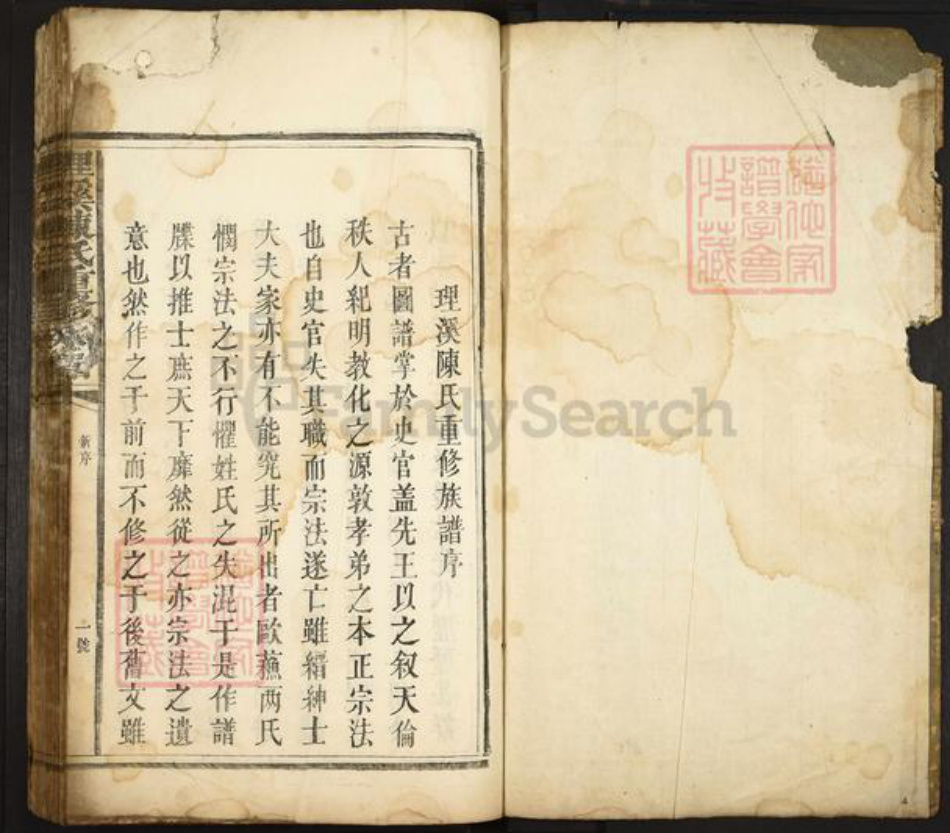 理溪陳氏重修族譜序
古者圖譜掌於史官盖先王以之叙天倫
秩人紀明教化之源敦孝弟之本正宗法
也自史官失其職而宗法遂亡雖縉紳士
大夫家亦有不能究其所出者歐蘓两氏
憫宗法之不行懼姓氏之失混于是作譜
牒以推士庶天下靡然從之亦宗法之遺
意也然作之于前而不修之于後舊文雖
理溪陳氏重修
新序
一號
譜學會
收藏
FamilySearch